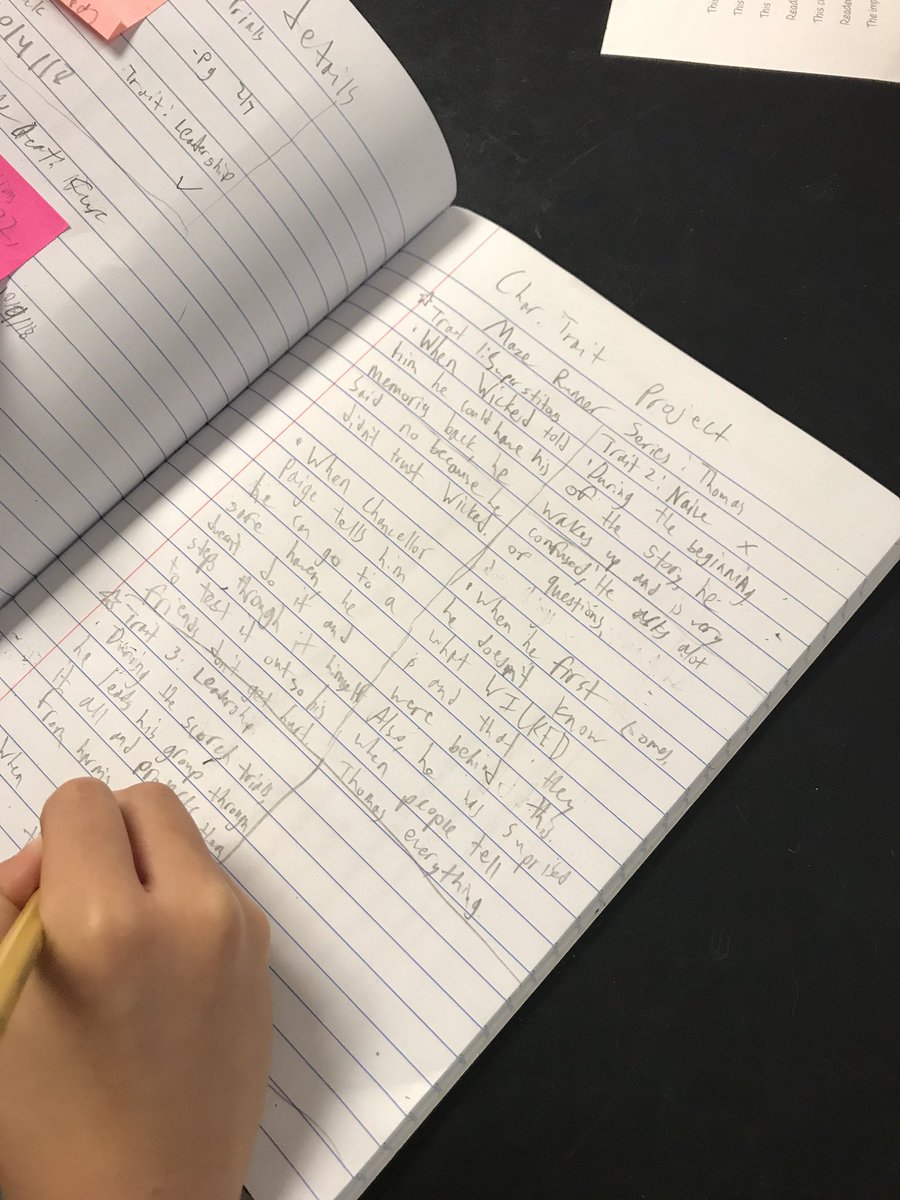 Details
Trials
-Pg 217
Trait: Leadership
✓
Death Cure
Char. Trait Project
Maze Runner Series: Thomas
☆Trait 1: Superstitios
• When Wickeid told
him he could have his
memoriy back, he
said no because he
didn't trust Wicked.
• When Chancellor
Paige tells him
he can go to a
safe haven, he
doesn't do it and
steps through it himself
to test it out so his
friends don't get hurt
☆ Trait 3: Leadership
• During the scorch trials,
he leads his group through
it all and
from harm
When
Trait 2: Naive x
• During the beginning
of the story, he
wakes up and is very
confused, He asks alot
of questions,
• When he first comes,
he doesn't know
what WICKED
is and that they
were behind this.
Also, he is suprised
when people tell
Thomas everything
This
This
This
Read
This
Reade
The imp